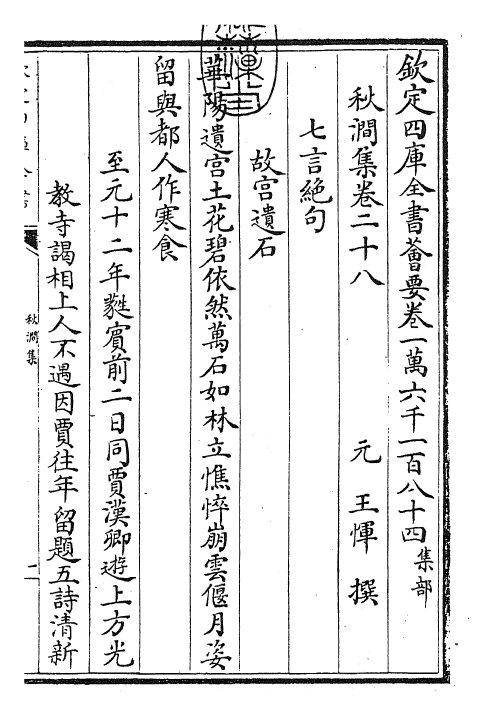 欽定四庫全書薈要卷一萬六千一百八十四集部
秋澗集卷二十八
元 王惲 撰
七言絶句
故宫遺石
華陽遺宫土花碧依然萬石如林立憔悴崩雲偃月姿
留與都人作寒食
至元十二年蕤賓前二日同賈漢卿遊上方光
教寺謁相上人不遇因賈往年留題五詩清新
秋澗集